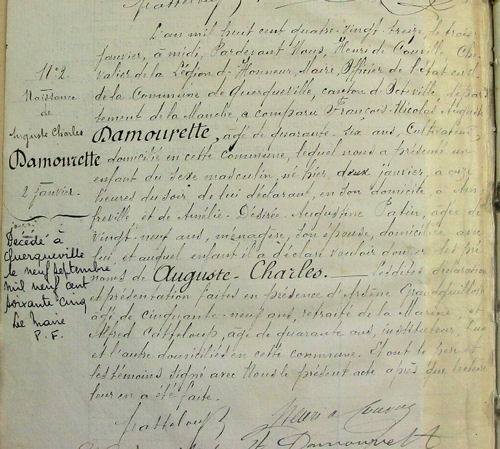 L'an mil huit cent quatre-vingt-treize, le trois
janvier, à midi, Pardevant Nous, Henri de Couville, Che-
valier de la Légion d'Honneur, Maire, Officier de l'état civil
de la Commune de Querqueville, canton d'Octeville, dépar-
tement de la Manche, a comparu François-Nicolas-Auguste
Damourette, agé de quarante-six ans, Cultivateur
domicilié en cette Commune, lequel nous a présenté un
enfant du sexe masculin, né hier, deux janvier, à onze
heures du soir, de lui déclarant, en son domicile à
et de Amélie-Désirée-Augustine Patin, agée de
vingt-neuf ans, ménagère, son épouse, domiciliée avec
lui, et auquel enfant il a déclaré vouloir donner les pré-
noms de Auguste-Charles. Lesdites déclaration
et présentation faites en présence d'Arsène
agé de cinquante-neuf ans, retraité de la Marine, et
Alfred Catteloup, agé de quarante ans, instituteur, l'un
et l'autre domiciliés en cette commune. Et ont le père et
les témoins signé avec Nous le présent acte après que lecture
leur en a été faite.
N° 2.
Naissance
de
Auguste Charles
Damourette
2 janvier.
Décédé à
Querqueville
le neuf septembre
mil neuf cent
soixante cinq
Le Maire
P. F.
Catteloup
Damourette